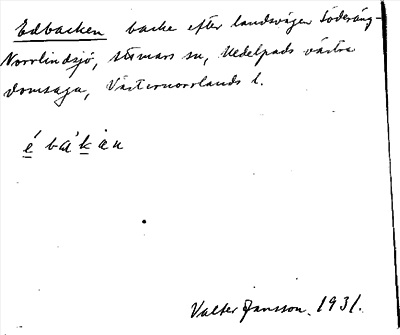 Edbacken backe efter landsvägen Söderäng-
Norrlindsjö, Attmars sn, Medelpads västra
domsaga, Västernorrlands l.
é bákan
Valter Jansson. 1931.